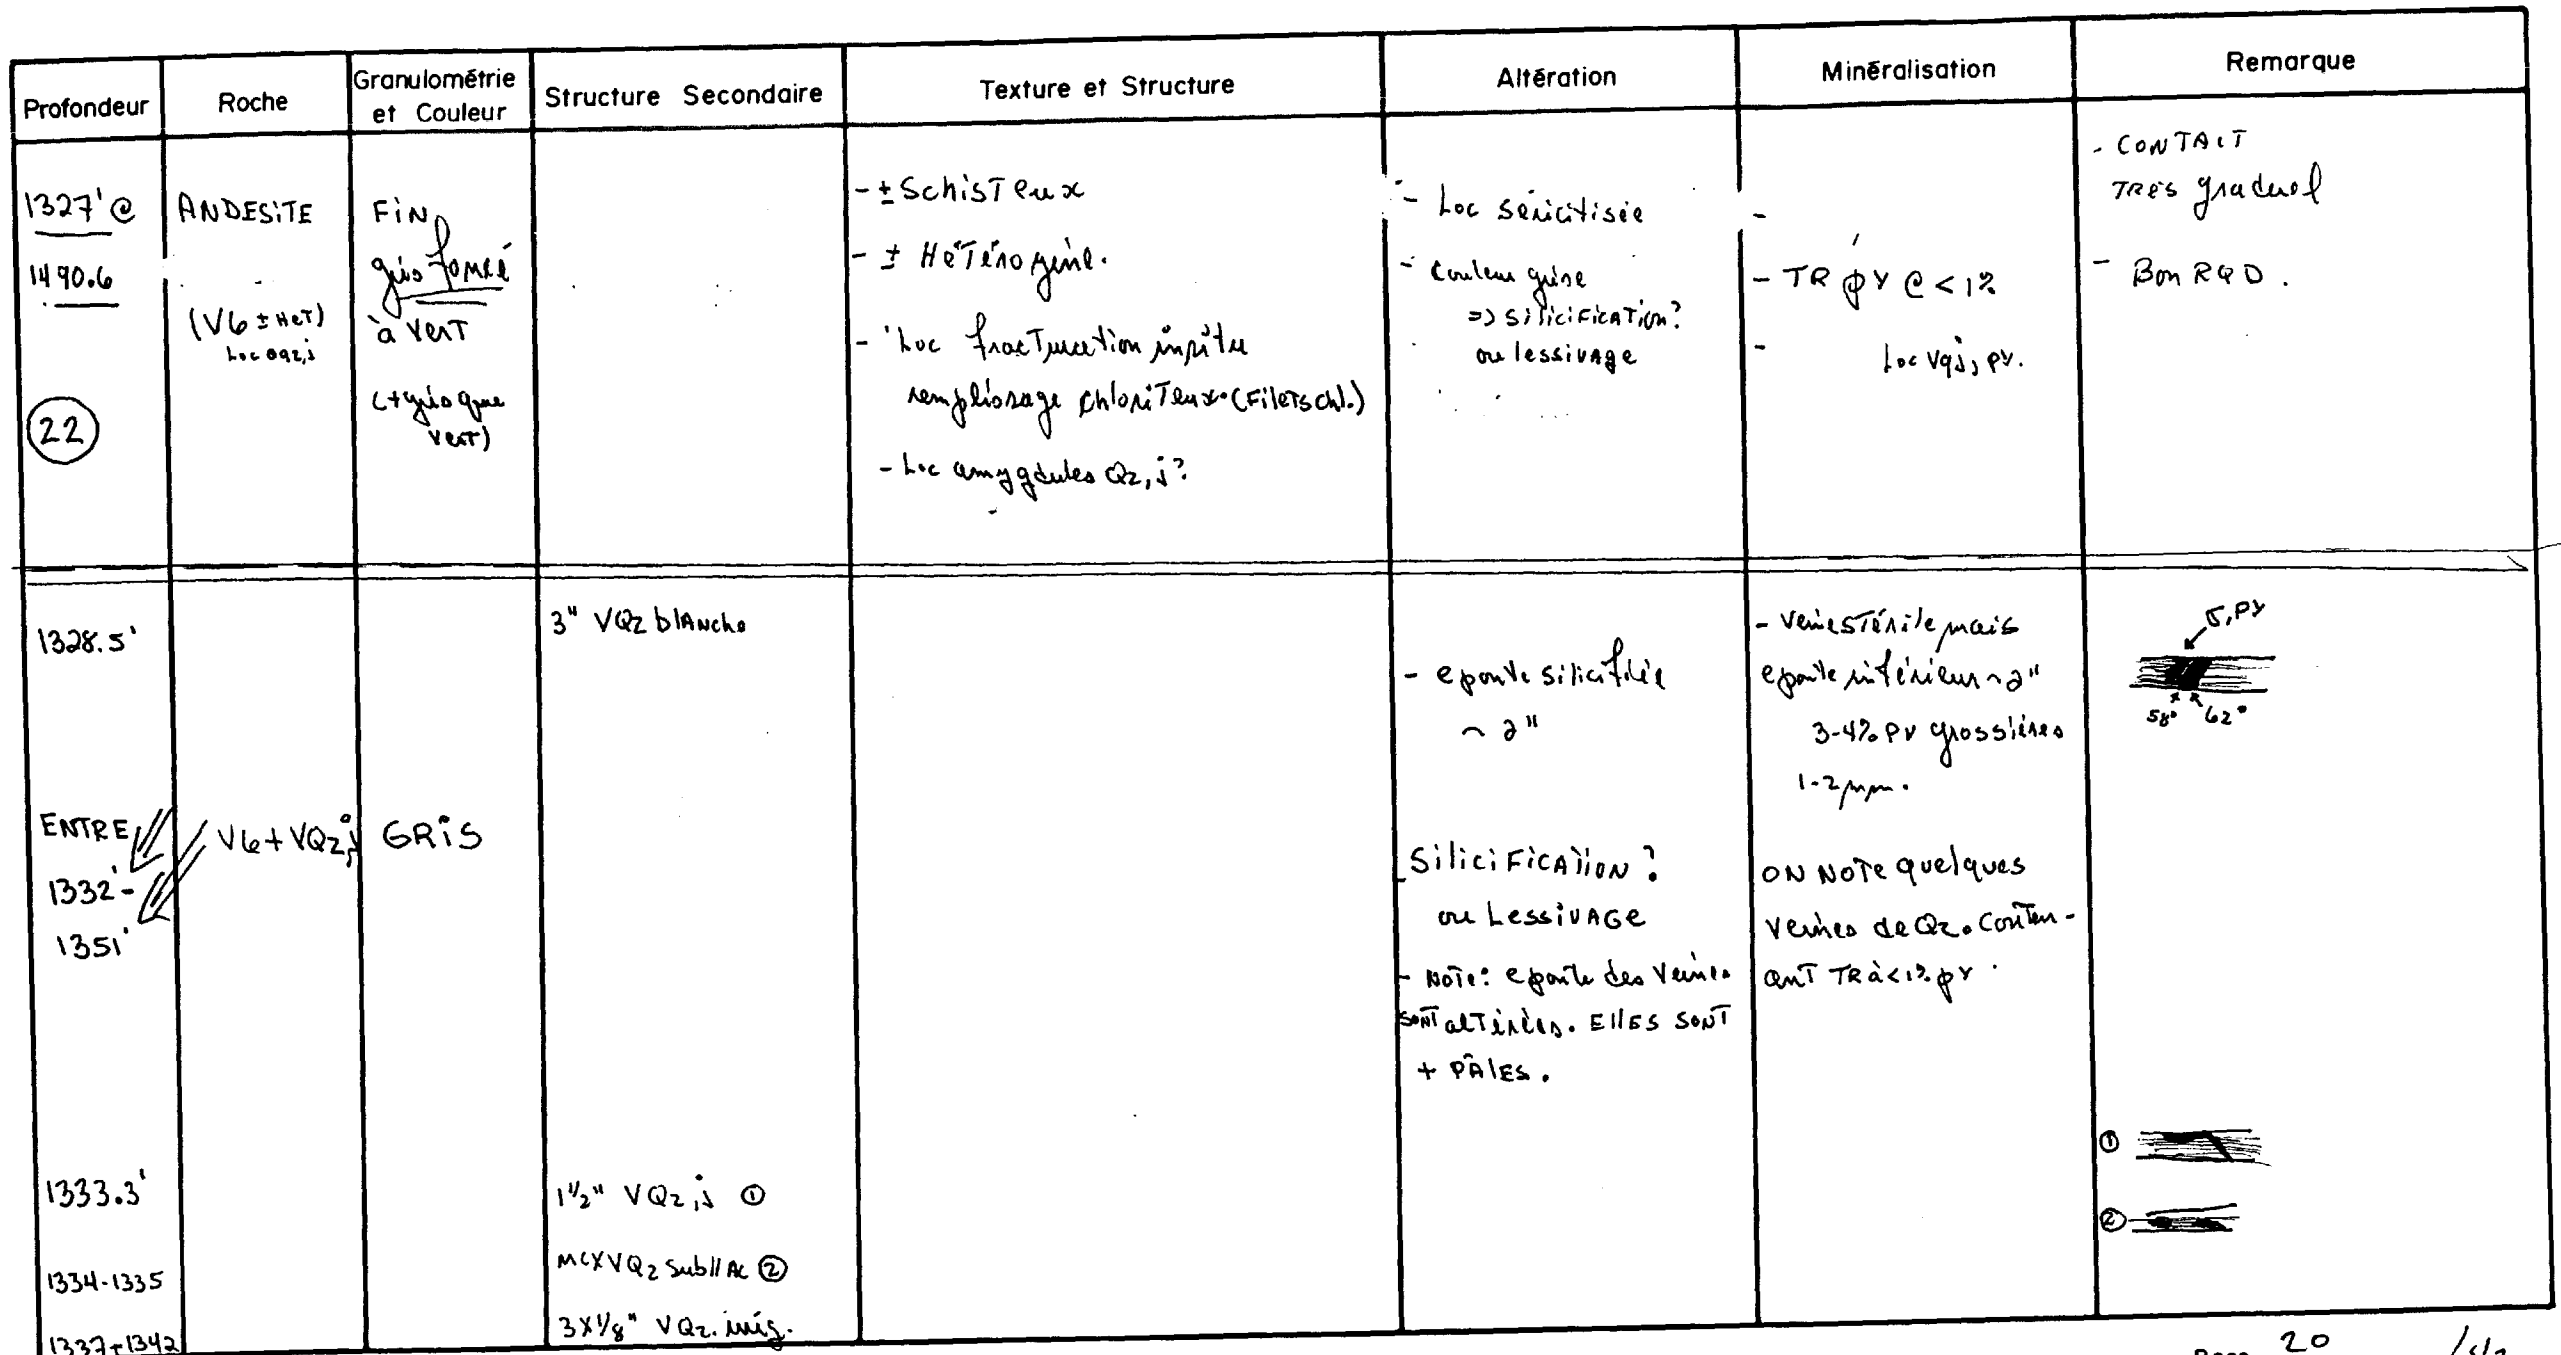 Profondeur
Roche
Granulométrie
et Couleur
Structure Secondaire
Texture et Structure
Altération
Minéralisation
Remarque
1327' @
1490.6
22
ANDESITE
(V6 ± HET)
Loc
FIN
gris foncé
à vert
(+ gris que
vert)
- ± Schisteux
- ± Hétérogène.
- Loc fracturation insitu
remplissage chloriteux. (Filets chl.)
- Loc amygdules Qz, j?
- Loc séricitisée
- Couleur grise
=> silicification?
ou lessivage
-
- TR py @ < 1%
- Loc Vqj, py.
- CONTACT
TRES graduel
- Bon RQD.
1328.5'
3" VQz blanche
- eponte silicifiée
~ 2"
- veine stérile mais
eponte inférieur ~ 2"
3-4% py grossières
1-2 mm.
σ, PY
58° 62°
ENTRE
1332' -
1351'
V6 + VQz, j
GRIS
- Silicification?
ou Lessivage
- NOTE: eponte des veines
sont altérées. Elles sont
+ PÂLES.
ON NOTE quelques
veines de Qz. conten-
ant TR à < 1% py.
1333.3'
1 1/2" VQz, j ①
①
1334-1335
MCX VQz sub// AC ②
②
1337+1342
3 X 1/8" VQz. irrég.
Page 20